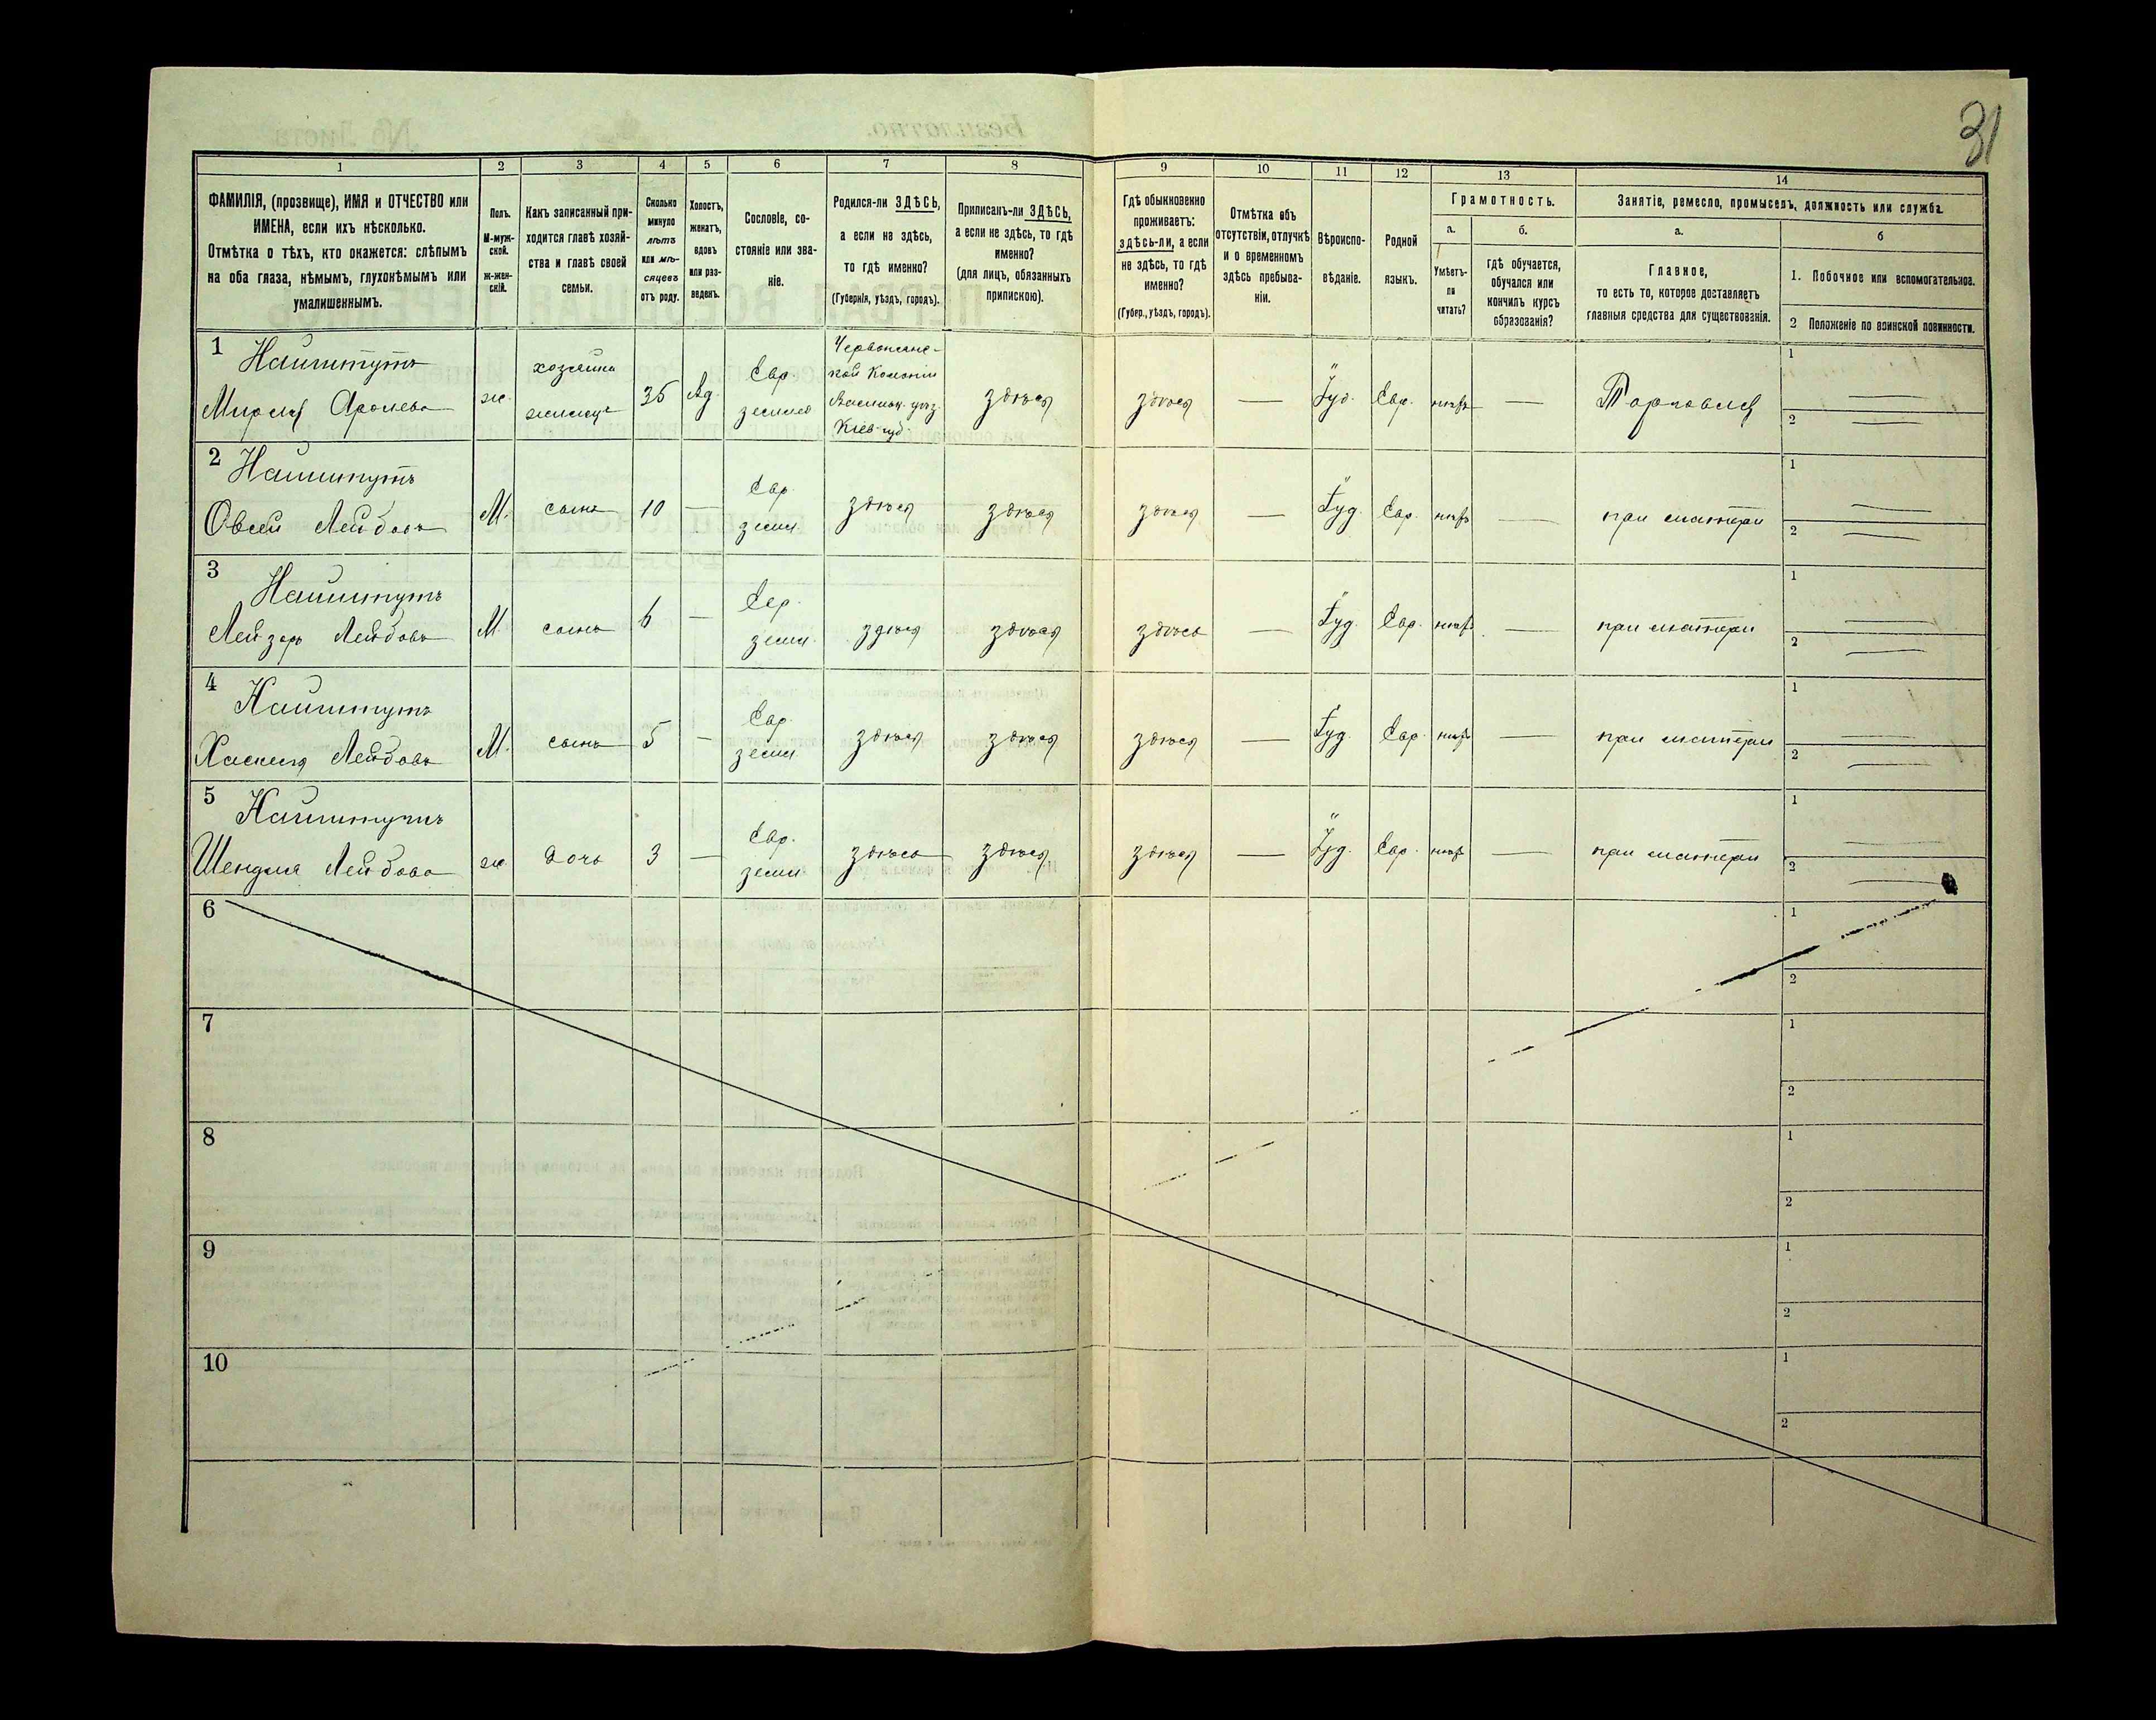 31
1 2 3 4 5 6 7 8 9 10 11 12 13 14
ФАМИЛІЯ, (прозвище), ИМЯ и ОТЧЕСТВО или
ИМЕНА, если ихъ нѣсколько.
Отмѣтка о тѣхъ, кто окажется: слѣпымъ
на оба глаза, нѣмымъ, глухонѣмымъ или
умалишеннымъ.
Полъ.
М-муж-
ской.
ж-жен-
скій.
Какъ записанный при-
ходится главѣ хозяй-
ства и главѣ своей
семьи.
Сколько
минуло
лѣтъ
или мѣ-
сяцевъ
отъ роду.
Холостъ,
женатъ,
вдовъ
или раз-
веденъ.
Сословіе, со-
стояніе или зва-
ніе.
Родился-ли ЗДѢСЬ,
а если не здѣсь,
то гдѣ именно?
(Губернія, уѣздъ, городъ).
Приписанъ-ли ЗДѢСЬ,
а если не здѣсь, то гдѣ
именно?
(для лицъ, обязанныхъ
припискою).
Гдѣ обыкновенно
проживаетъ:
здѣсь-ли, а если
не здѣсь, то гдѣ
именно?
(Губер., уѣздъ, городъ).
Отмѣтка объ
отсутствіи, отлучкѣ
и о временномъ
здѣсь пребыва-
ніи.
Вѣроиспо-
вѣданіе.
Родной
языкъ.
Грамотность.
а.
Умѣетъ-
ли
читать?
б.
гдѣ обучается,
обучался или
кончилъ курсъ
образованія?
Занятіе, ремесло, промыселъ, должность или служба.
а.
Главное,
то есть то, которое доставляетъ
главныя средства для существованія.
б
1. Побочное или вспомогательное.
2 Положеніе по воинской повинности.
1 Найштутъ
Аронева
ж.
хозяйка
35
Вд.
Евр.
Кіев. губ.
здѣсь
здѣсь
—
Іуд.
Евр.
нѣтъ
—
Торговля
1
2
2 Найштутъ
Овсей Лейбовъ
М.
сынъ
10
—
Евр.
земл.
здѣсь
здѣсь
здѣсь
—
Іуд.
Евр.
нѣтъ
—
при матери
1
2
3 Найштутъ
Лейзеръ Лейбовъ
М.
сынъ
6
—
Евр.
земл.
здѣсь
здѣсь
здѣсь
—
Іуд.
Евр.
нѣтъ
—
при матери
1
2
4 Найштутъ
Хаскель Лейбовъ
М.
сынъ
5
—
Евр.
земл.
здѣсь
здѣсь
здѣсь
—
Іуд.
Евр.
нѣтъ
—
при матери
1
2
5 Найштутъ
Шендля Лейбова
ж.
дочь
3
—
Евр.
земл.
здѣсь
здѣсь
здѣсь
—
Іуд.
Евр.
нѣтъ
—
при матери
1
2
6
1
2
7
1
2
8
1
2
9
1
2
10
1
2